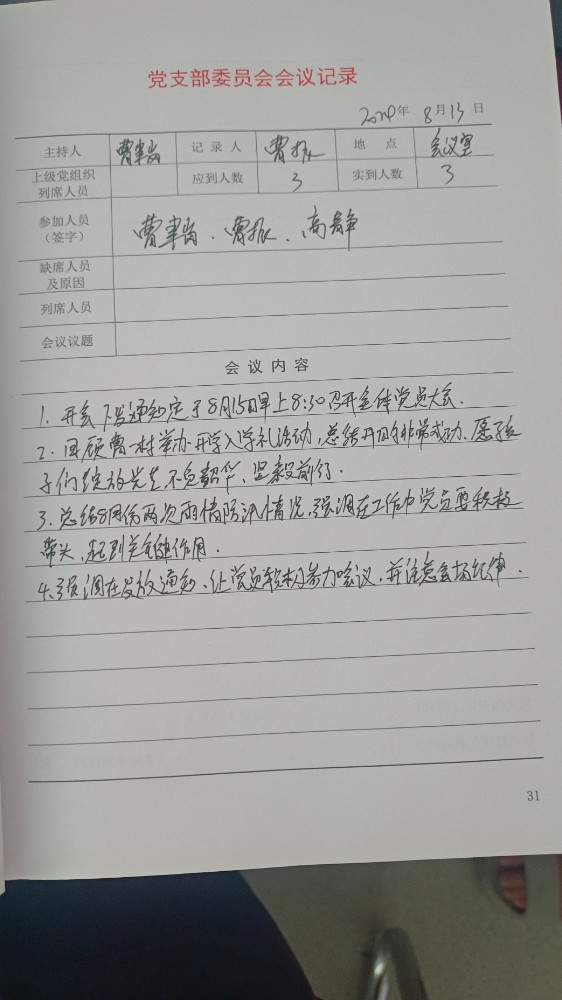 党支部委员会会议记录
2024年 8月13日
主持人 曹 记录人 曹振 地点 会议室
上级党组织列席人员 应到人数 3 实到人数 3
参加人员(签字) 曹、曹振、高静
缺席人员及原因
列席人员
会议议题
会议内容
1. 开会下发通知定于8月15日早上8:30召开全体党员大会.
2. 回顾曹一村举办开学入学礼活动,总结开的非常成功.愿孩
子们绽放光芒不负韶华、坚毅前行.
3. 总结8月份两次雨情防汛情况,强调在工作中党员要积极
带头,起到关键作用.
4. 强调在发放通知,让党员积极参加会议,并注意会场纪律.
31